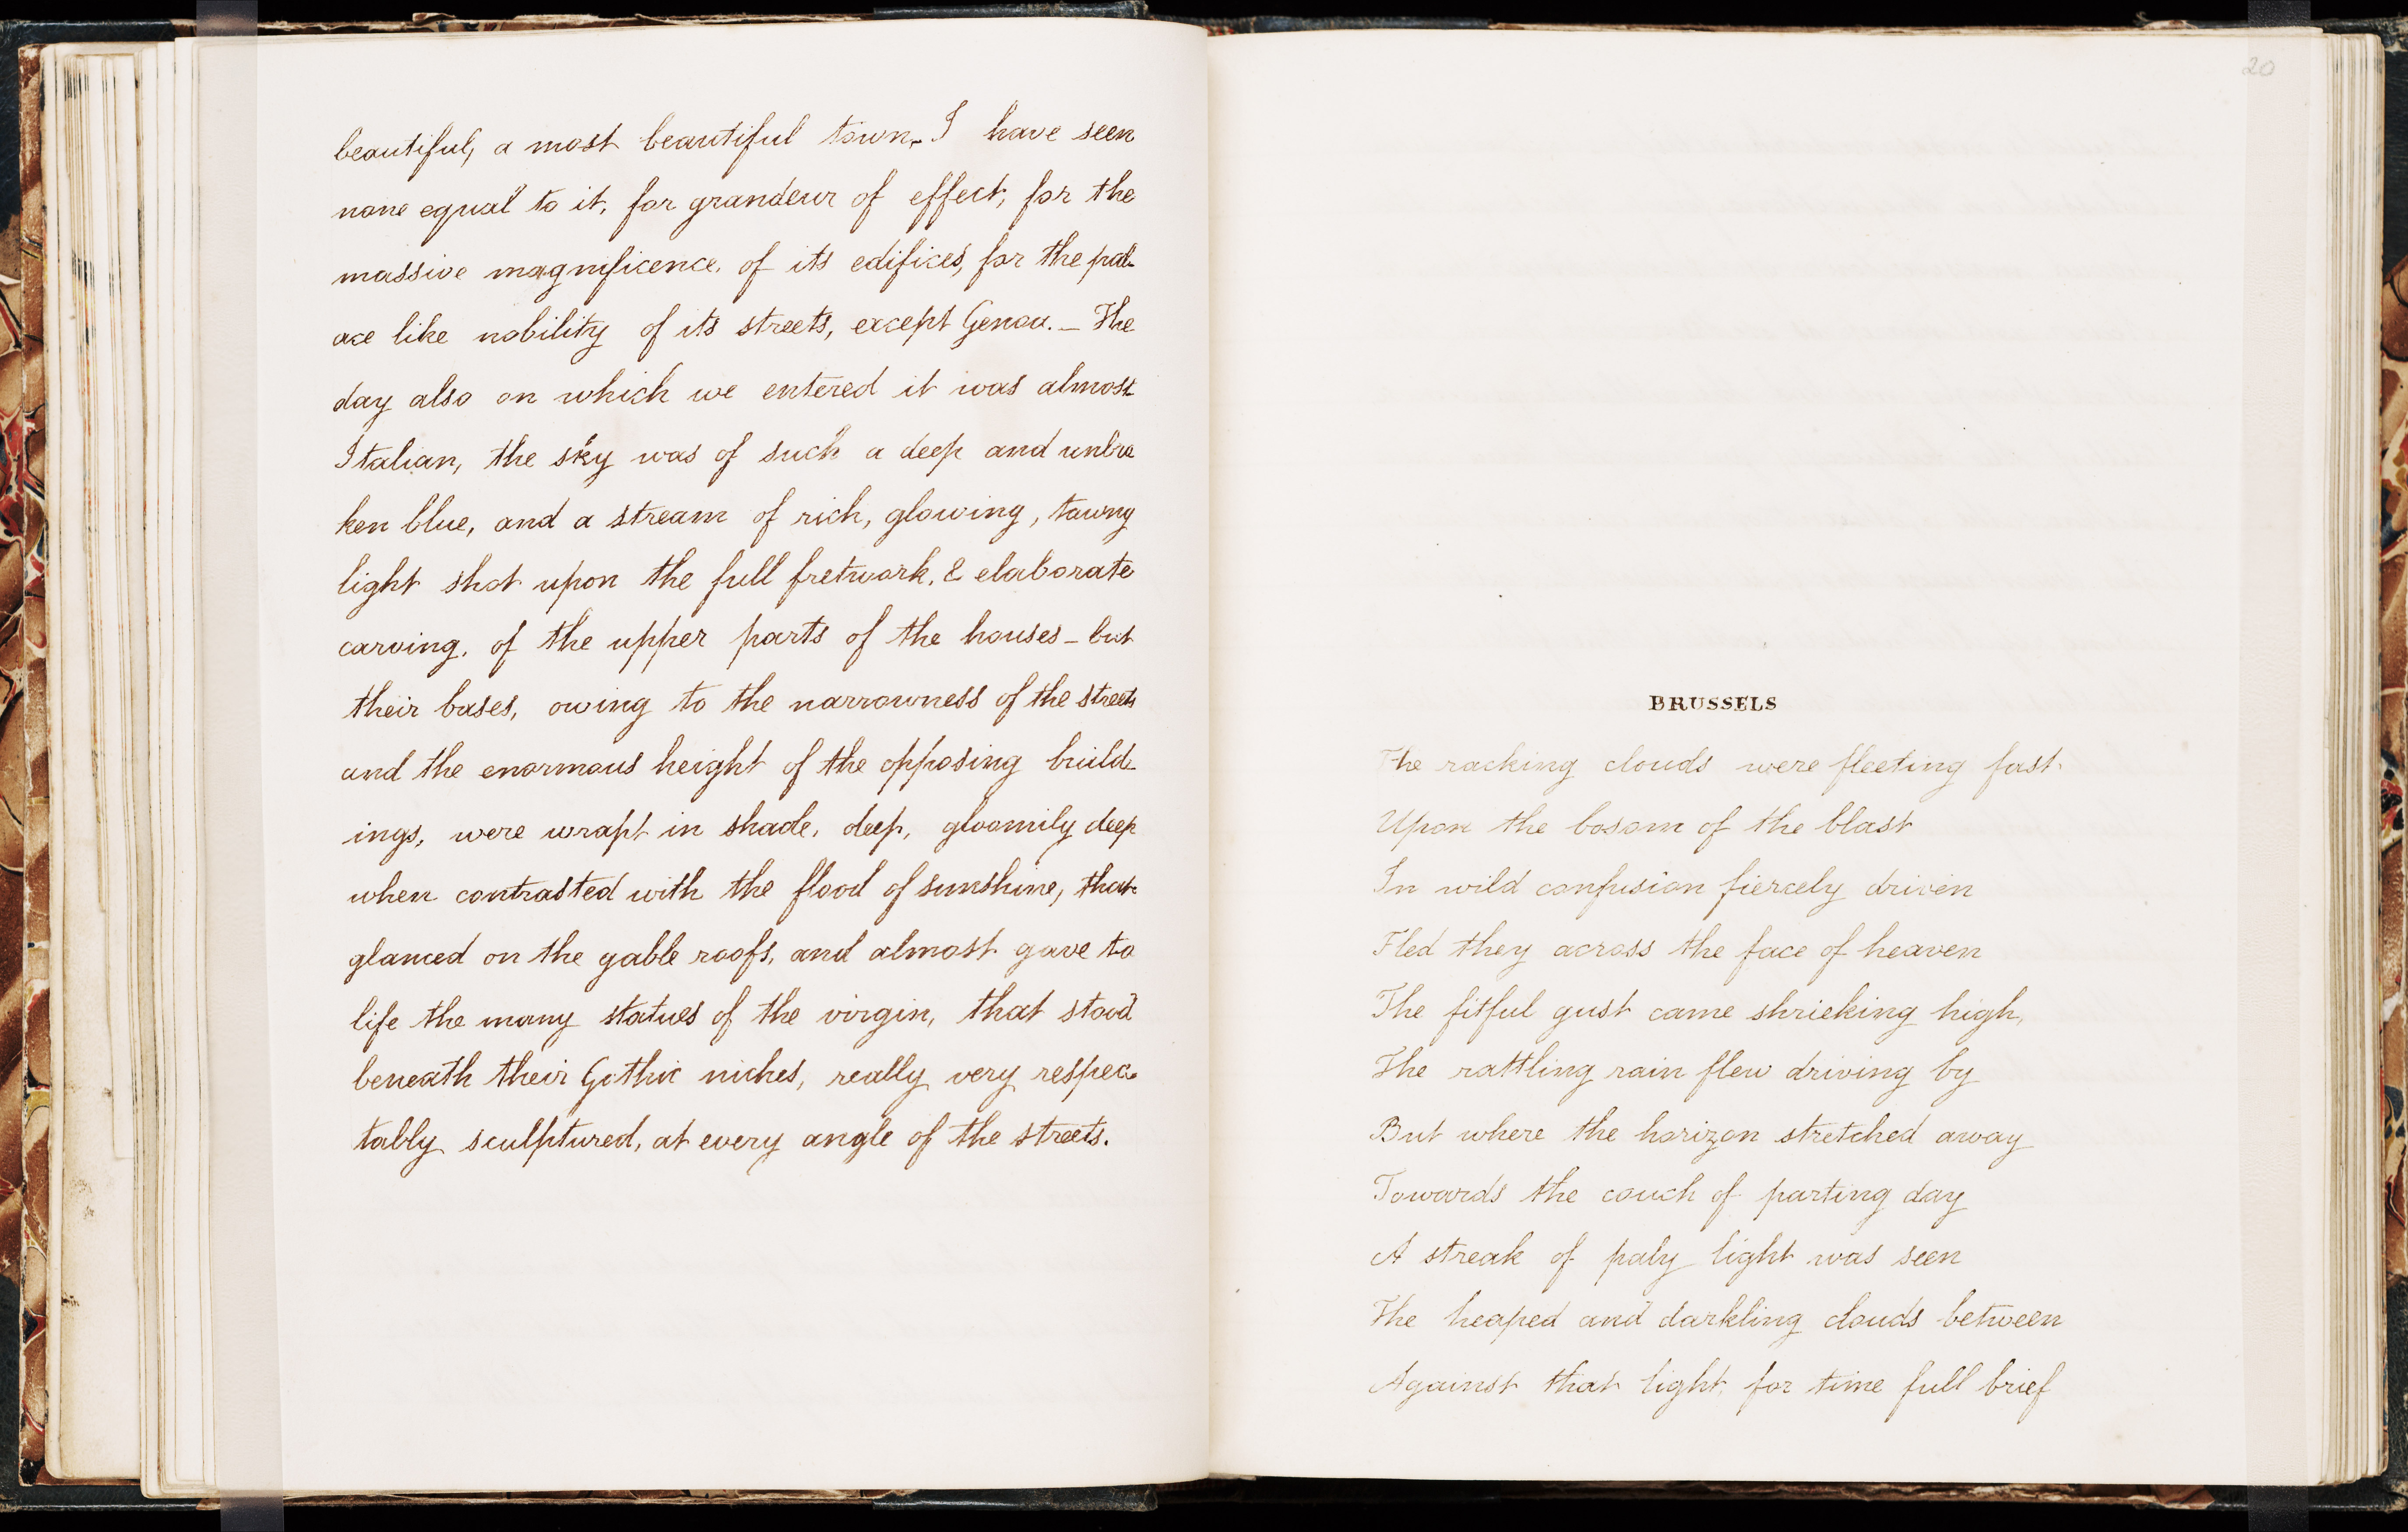 beautiful, a most beautiful town. I have seen
none equal to it, for grandeur of effect, for the
massive magnificence, of its edifices, for the pal-
ace like nobility of its streets, except Genoa. _ The
day also on which we entered it was almost
Italian, the sky was of such a deep and unbro
ken blue, and a stream of rich, glowing, tawny
light shot upon the full fretwork, & elaborate
carving, of the upper parts of the houses _ but
their bases, owing to the narrowness of the streets
and the enormous height of the opposing build-
ings, were wrapt in shade, deep, gloomily deep
when contrasted with the flood of sunshine, that
glanced on the gable roofs, and almost gave to
life the many statues of the virgin, that stood
beneath their Gothic niches, really very respec-
tably sculptured, at every angle of the streets.
20
BRUSSELS
The racking clouds were fleeting fast
Upon the bosom of the blast
In wild confusion fiercely driven
Fled they across the face of heaven
The fitful gust came shrieking high,
The rattling rain flew driving by
But where the horizon stretched away
Towards the couch of parting day
A streak of paly light was seen
The heaped and darkling clouds between
Against that light, for time full brief